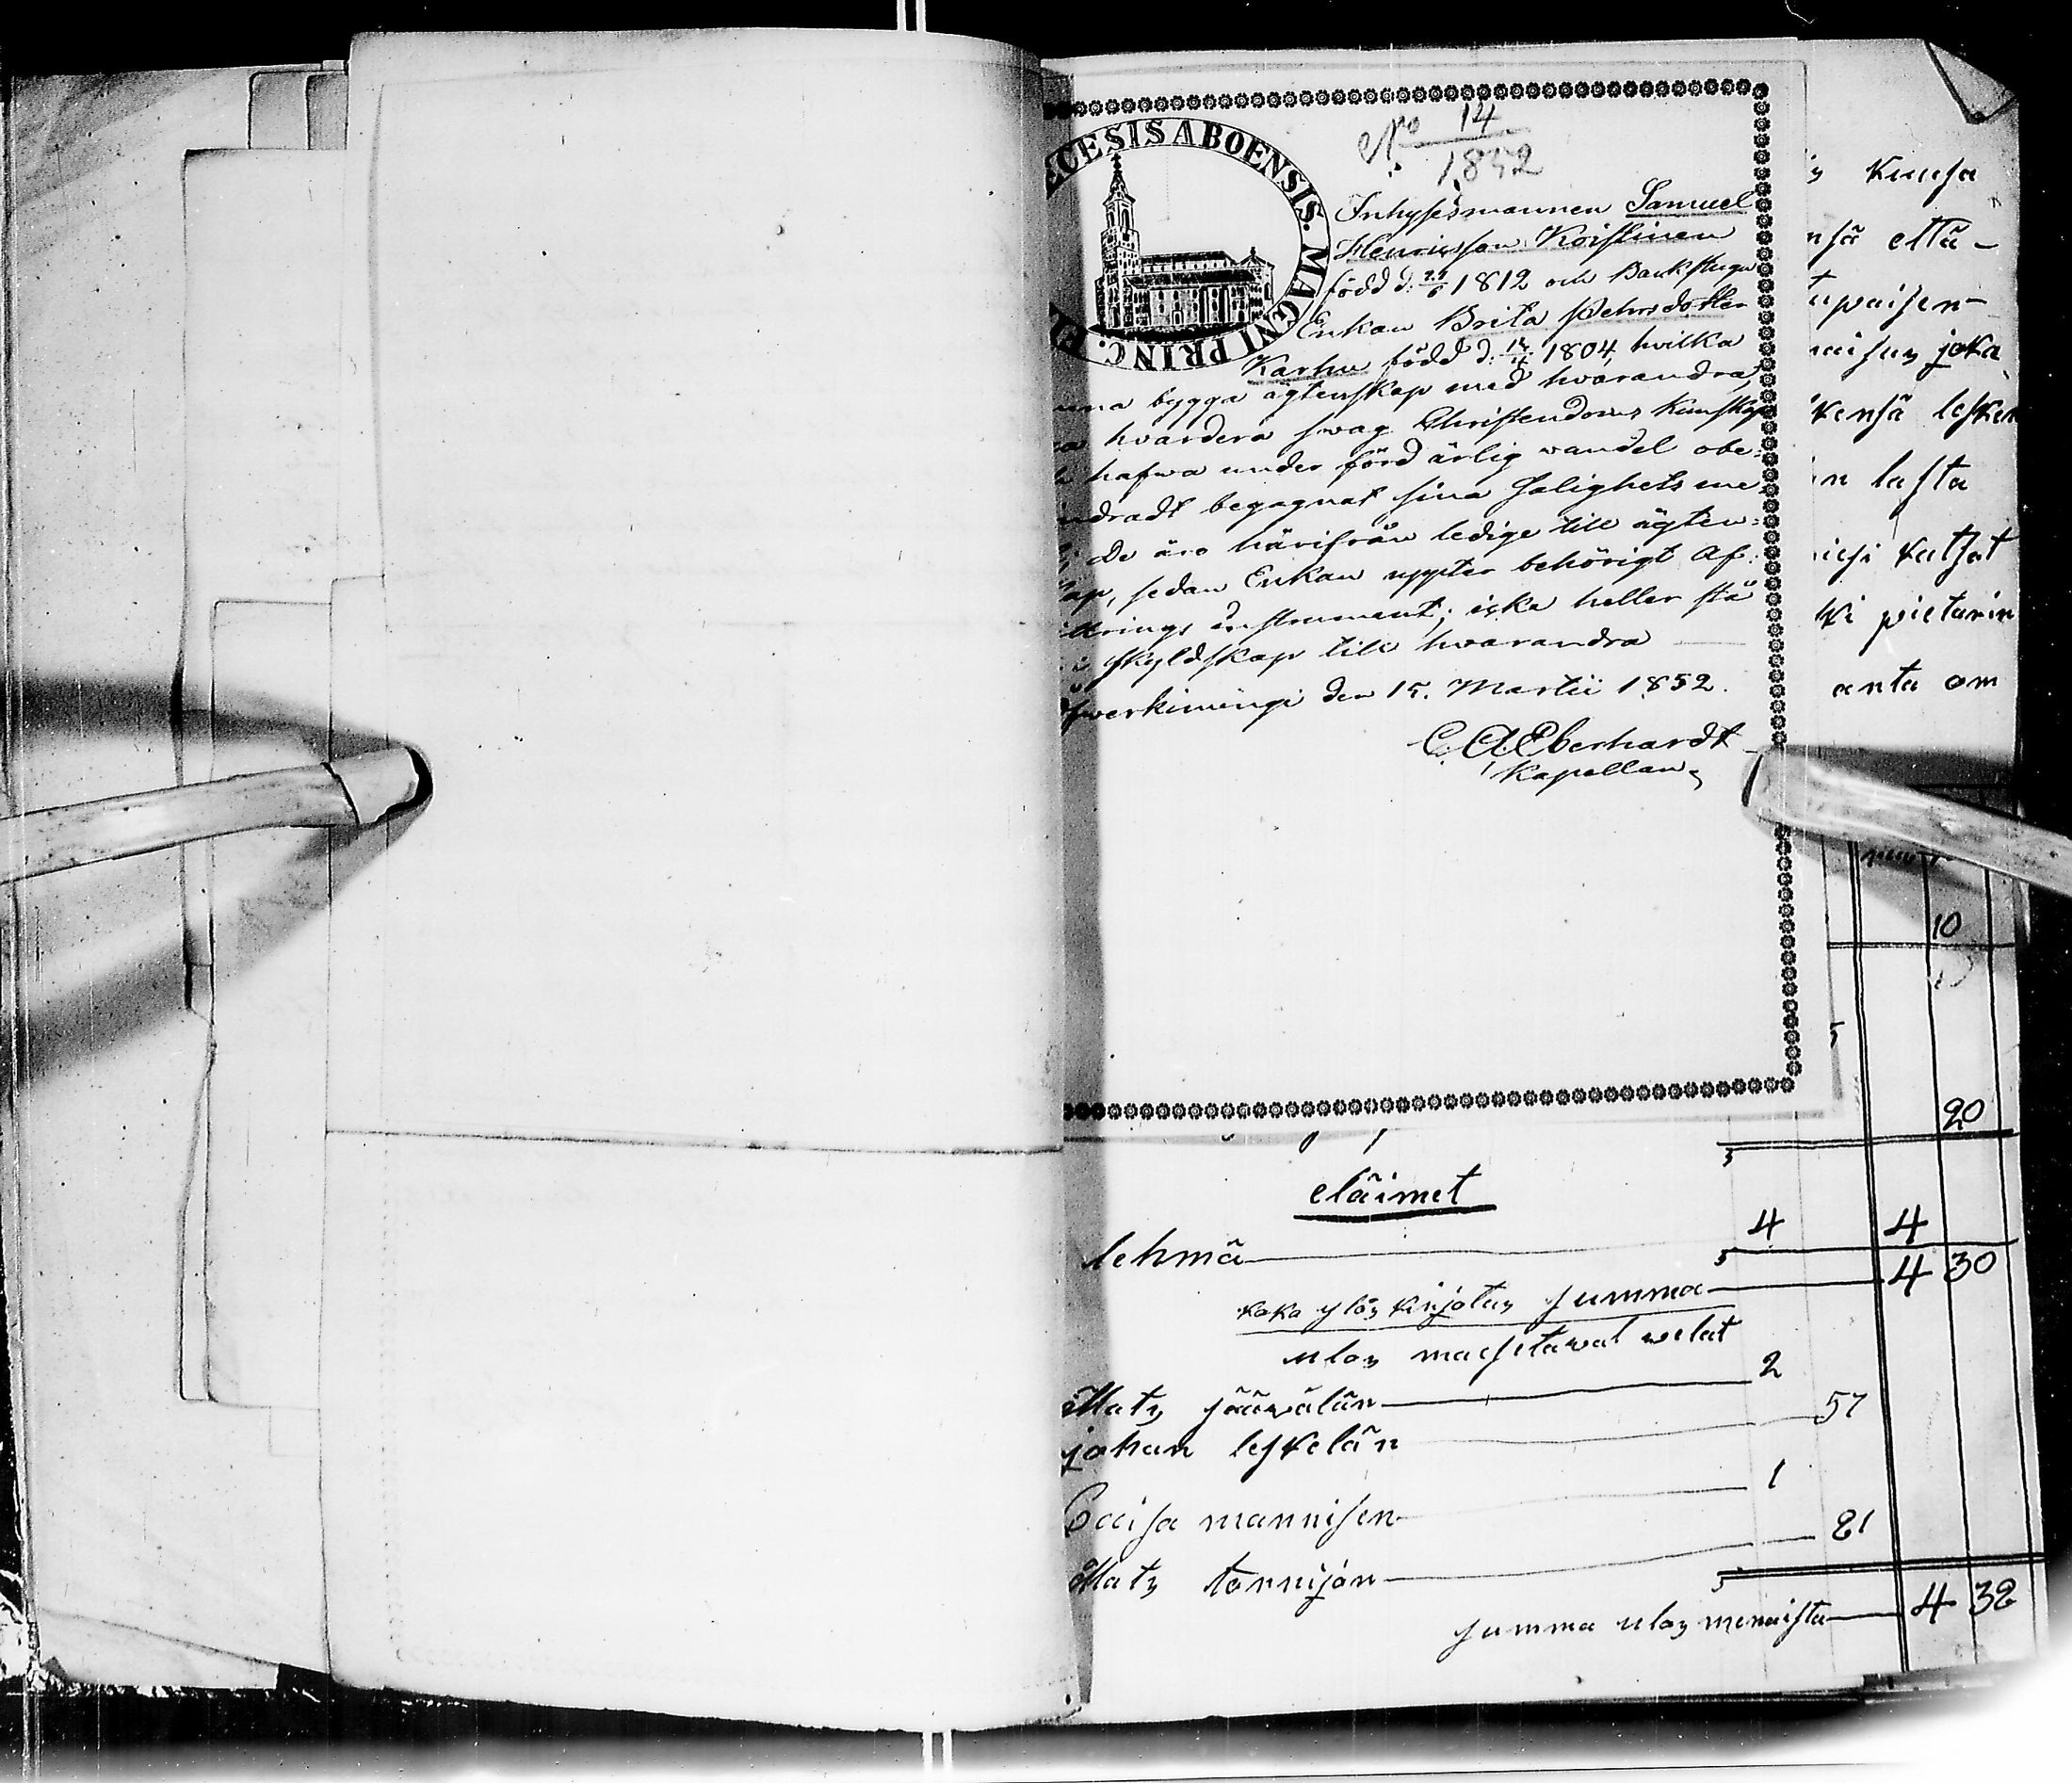 No 14
1852
ECESIS ABOENSIS. MAGNI PRINC. F
Inhysesmannen Samuel
Henricsson Koistinen
född d. 1812 och Backstugu
Enkan Brita Pehrsdotter
Karhu född d. 1804, hvilka
una bygga ägtenskap med hvarandra,
hvardera swag Christendoms kunskap
hafwa under förd ärlig wandel obe=
ndradt begagnat sina salighets me=
De äro härifrån ledige till ägten=
ap, sedan Enkan uppter behörigt Af=
ttrings instrument; icke heller stå
skyldskap till hvarandra
werkiningi den 15. Martii 1852.
C. A. Eberhardt
Kapellan
kuusa
nsä että-
upaisen-
joka
kensä lesken
n lasta
katsat
ki pietarin
anta om
10
20
eläimet
lehmä 4 4
koko ylös kirjotus summa 4 30
ulos maksetavat welat
Mats jääwälän 2
johan leskelän 57
Caisa mannisen 1
Mats tonnijan 21
summa ulos menoista 4 32